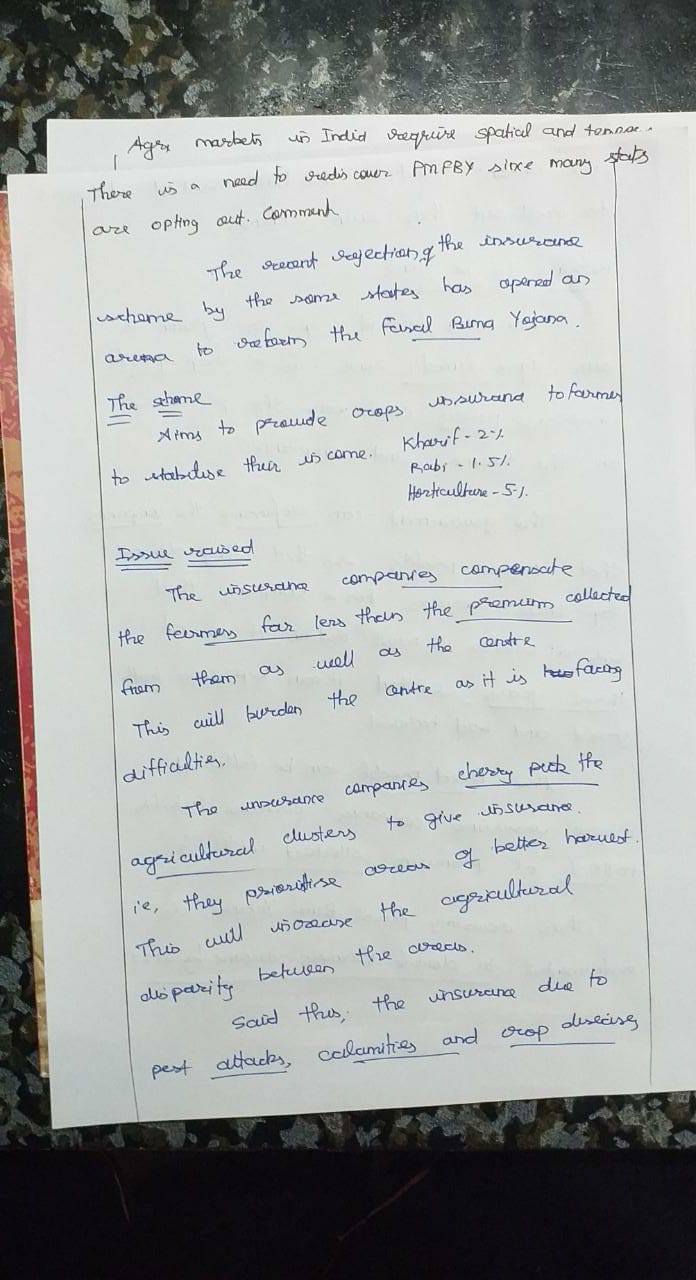 Agri markets in India require spatial and
There is a need to rediscover PMFBY since many states
are opting out. Comment
The recent rejection of the insurance
scheme by the some states has opened an
arena to reform the Fasal Bima Yojana.
The scheme
Aims to provide crops insurance to farmer
to stabilise their income. Kharif - 2%
Rabi - 1.5%
Horticulture - 5%
Issue raised
The insurance companies compensate
the farmers far less than the premium collected
from them as well as the centre
This will burden the centre as it is facing
difficulties.
The insurance companies cherry pick the
agricultural clusters to give insurance.
i.e, they prioritise areas of better harvest.
This will increase the agricultural
disparity between the areas.
Said this, the insurance due to
pest attacks, calamities and crop diseases